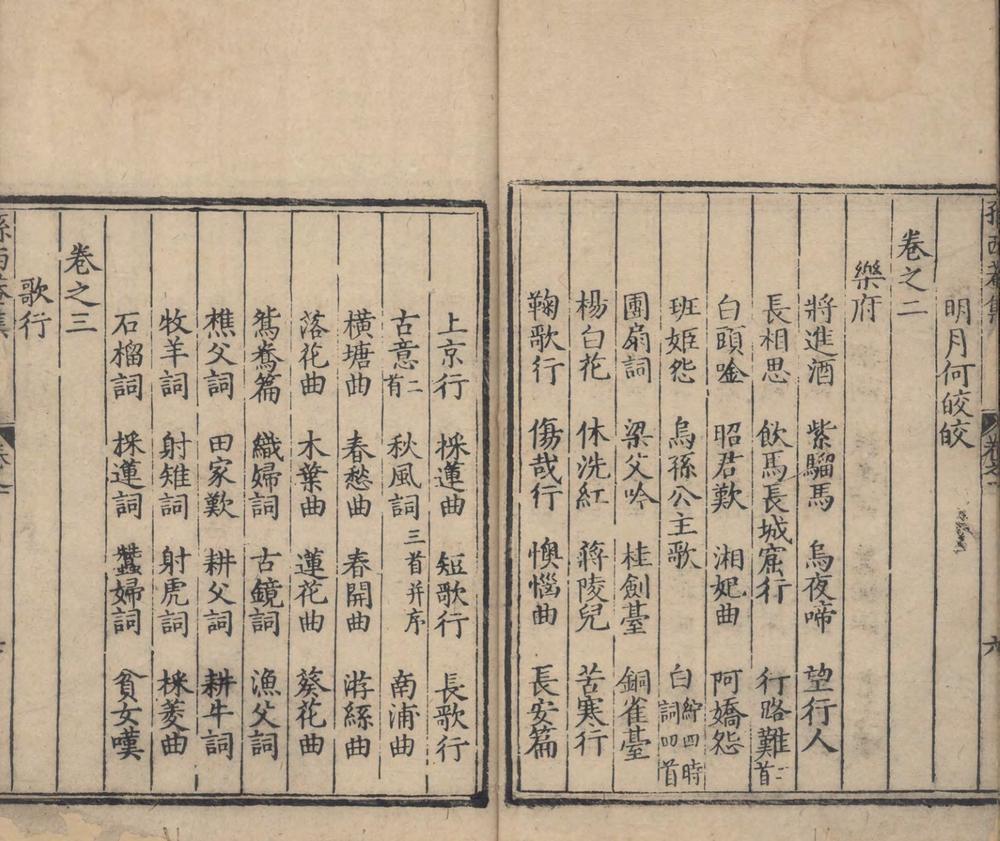 明月何皎皎
卷之二
樂府
將進酒 紫騮馬 烏夜啼 望行人
長相思 飲馬長城窟行 行路難二首
白頭唫 昭君歎 湘妃曲 阿嬌怨
班姬怨 烏孫公主歌 白紵四時詞四首
團扇詞 梁父吟 桂劍臺 銅雀臺
楊白花 休洗紅 蔣陵兒 苦寒行
鞠歌行 傷哉行 懊惱曲 長安篇
上京行 採蓮曲 短歌行 長歌行
古意二首 秋風詞三首并序 南浦曲
橫塘曲 春愁曲 春開曲 游絲曲
落花曲 木葉曲 蓮花曲 葵花曲
鴛鴦篇 織婦詞 古鏡詞 漁父詞
樵父詞 田家歎 耕父詞 耕牛詞
牧羊詞 射雉詞 射虎詞 採菱曲
石榴詞 採蓮詞 蠶婦詞 貧女嘆
卷之三
歌行